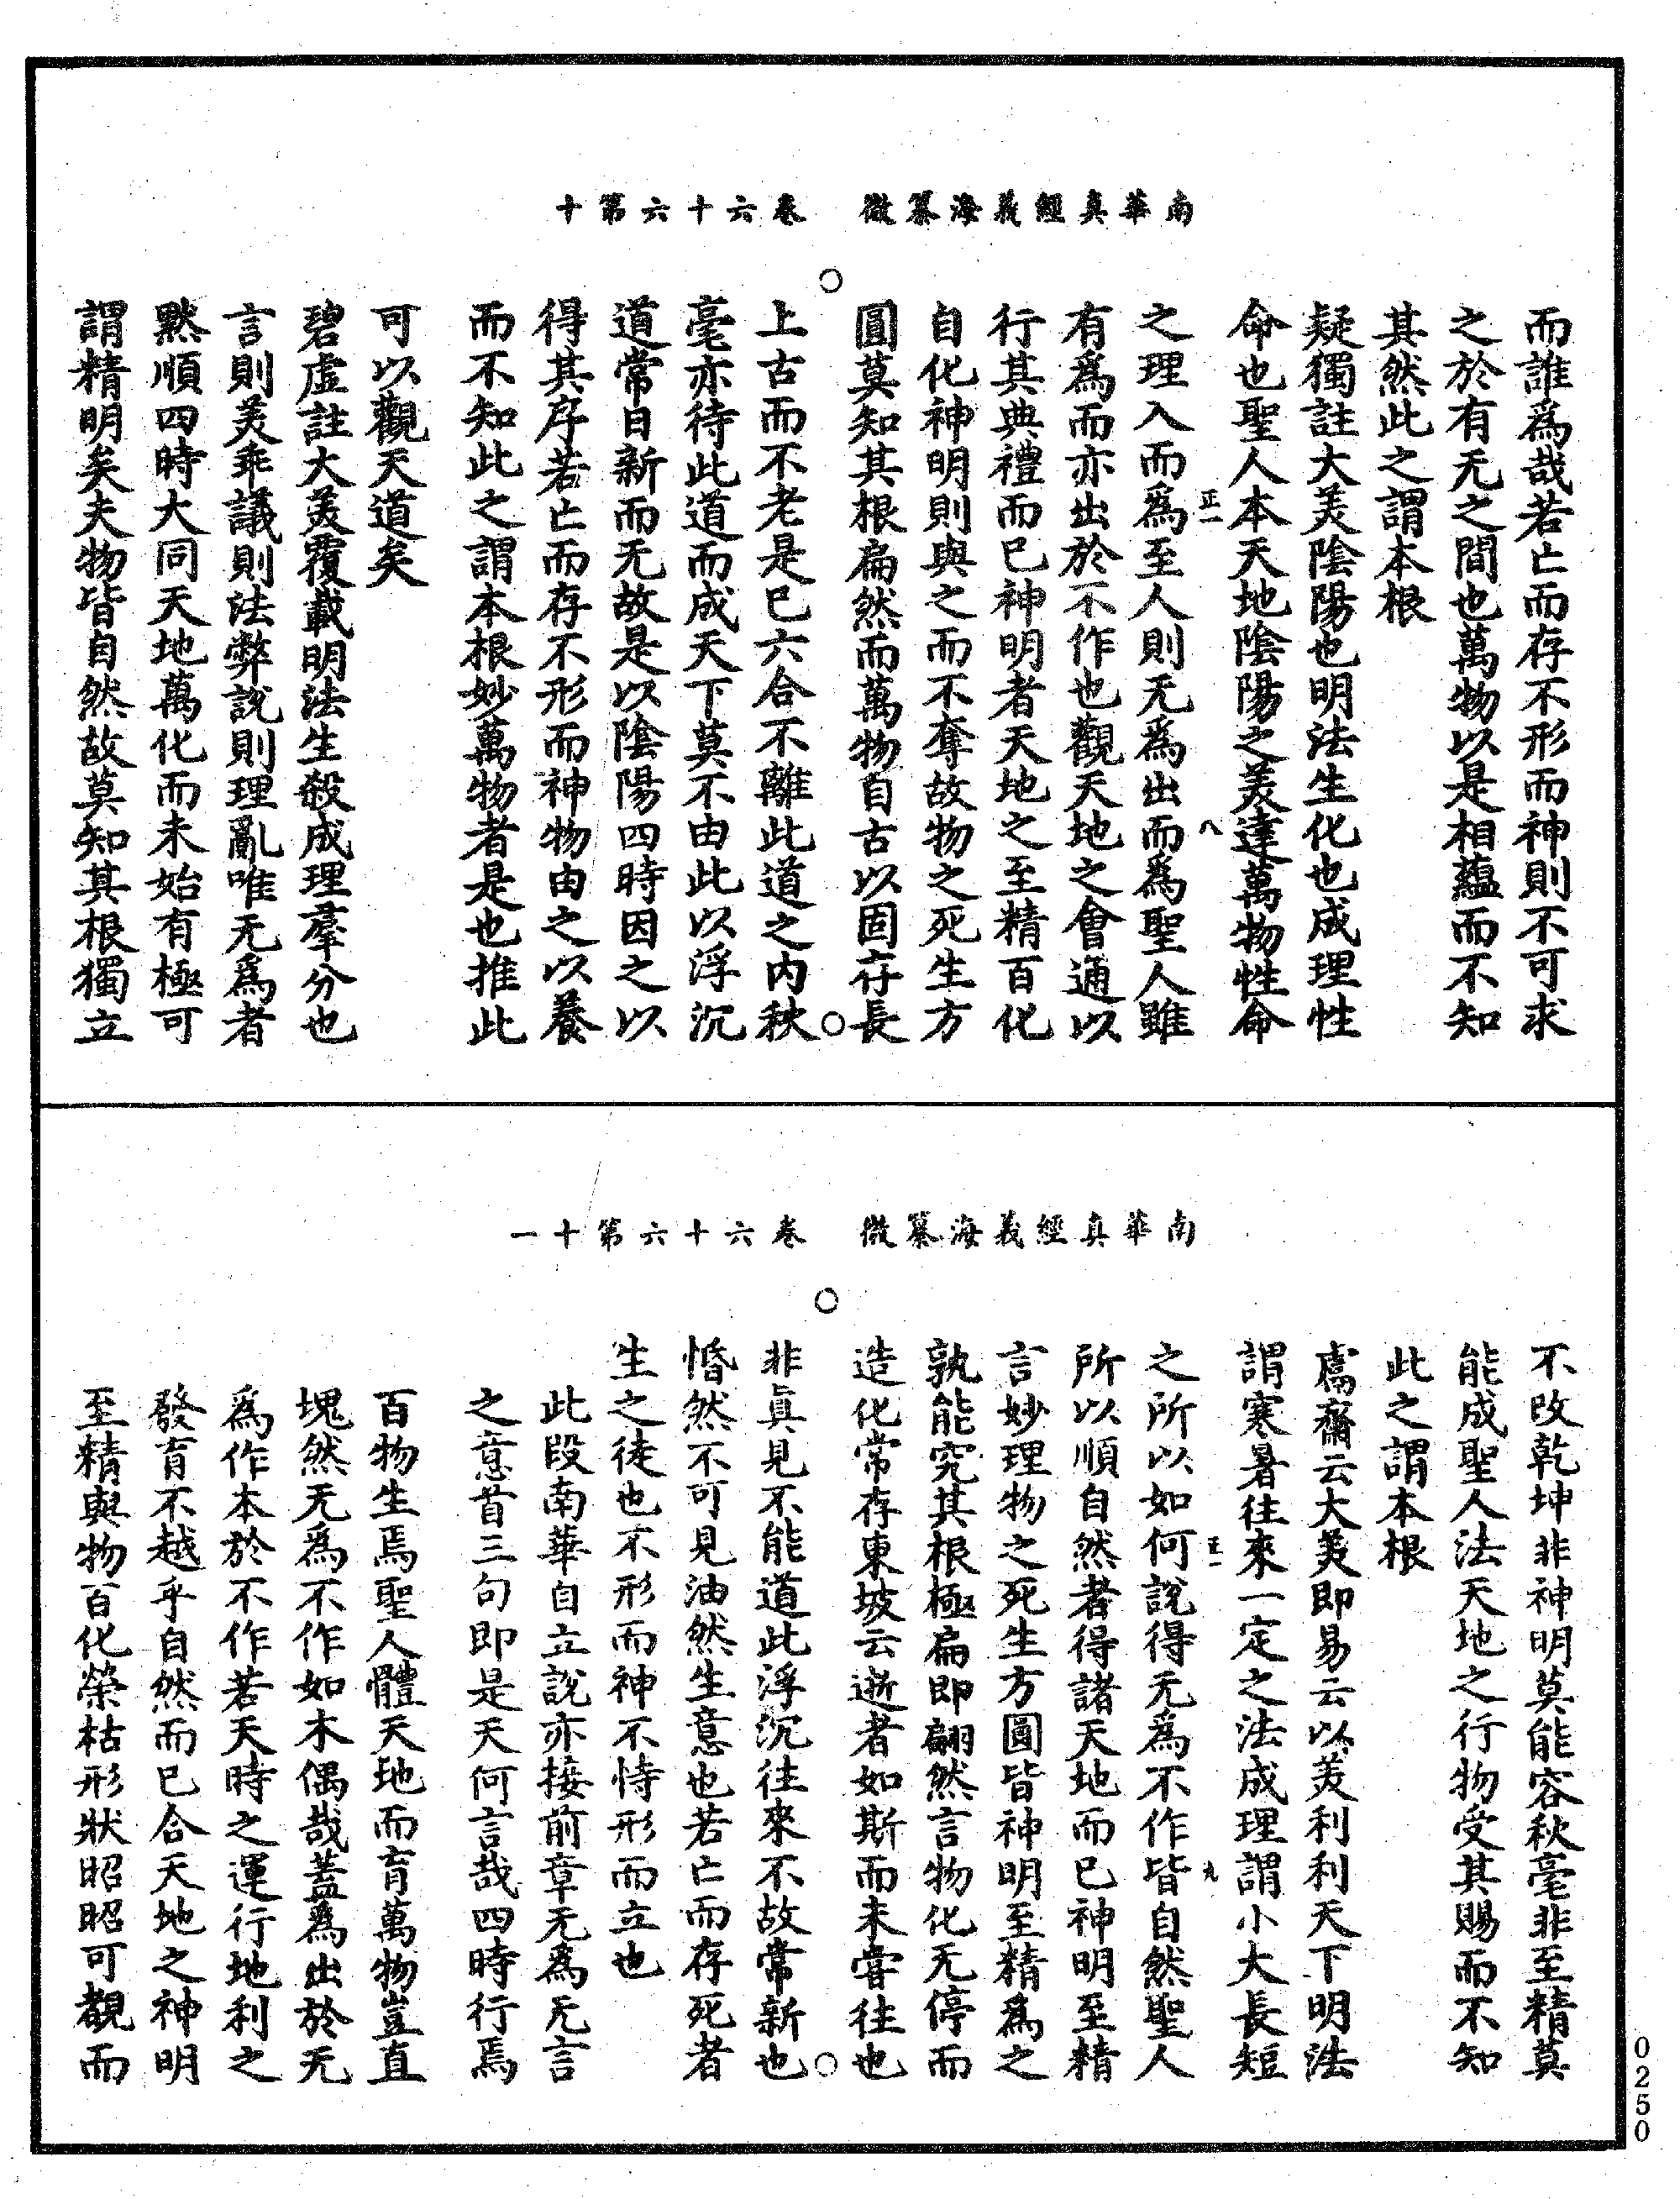 南華真經義海纂微　卷六十六第十
而誰爲哉若亡而存不形而神則不可求
之於有无之間也萬物以是相蘊而不知
其然此之謂本根
疑獨註大美陰陽也明法生化也成理性
命也聖人本天地陰陽之美達萬物性命
正一　八
之理入而爲至人則无爲出而爲聖人雖
有爲而亦出於不作也觀天地之會通以
行其典禮而已神明者天地之至精百化
自化神明則與之而不奪故物之死生方
圓莫知其根扁然而萬物自古以固存長
上古而不老是已六合不離此道之內秋
毫亦待此道而成天下莫不由此以浮沉
道常日新而无故是以陰陽四時因之以
得其序若亡而存不形而神物由之以養
而不知此之謂本根妙萬物者是也推此
可以觀天道矣
碧虛註大美覆載明法生殺成理羣分也
言則美乖議則法弊說則理亂唯无爲者
黙順四時大同天地萬化而未始有極可
謂精明矣夫物皆自然故莫知其根獨立
南華真經義海纂微　卷六十六第十一
不改乾坤非神明莫能容秋毫非至精莫
能成聖人法天地之行物受其賜而不知
此之謂本根
鬳齋云大美即易云以美利利天下明法
謂寒暑往來一定之法成理謂小大長短
正一　九
之所以如何說得无爲不作皆自然聖人
所以順自然者得諸天地而已神明至精
言妙理物之死生方圓皆神明至精爲之
孰能究其根極扁即翩然言物化无停而
造化常存東坡云逝者如斯而未嘗往也
非真見不能道此浮沉往來不故常新也
惛然不可見油然生意也若亡而存死者
生之徒也不形而神不恃形而立也
此段南華自立說亦接前章无爲无言
之意首三句即是天何言哉四時行焉
百物生焉聖人體天地而育萬物豈直
塊然无爲不作如木偶哉蓋爲出於无
爲作本於不作若天時之運行地利之
發育不越乎自然而已合天地之神明
至精與物百化榮枯形狀昭昭可覩而
0250